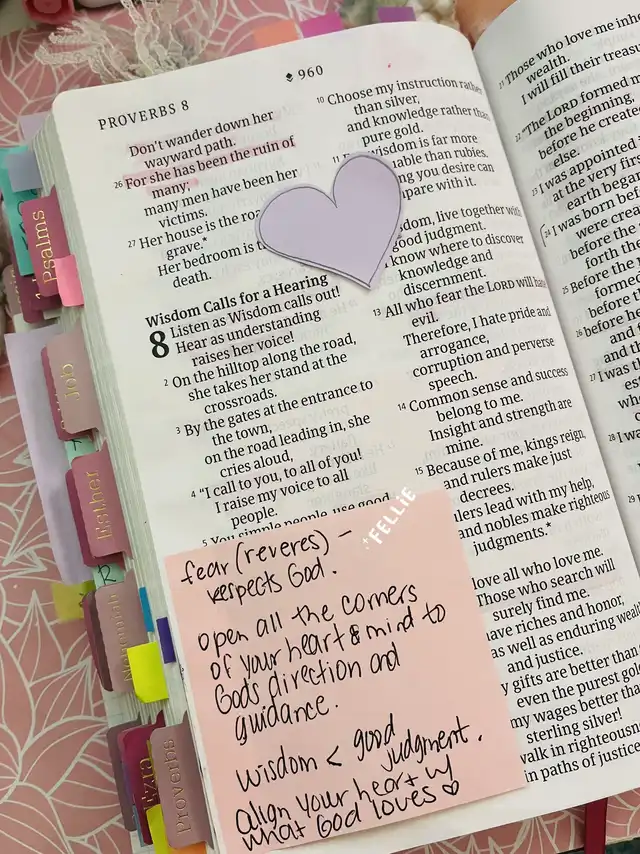 PROVERBS 8
960
Don't wander down her
wayward path.
26 For she has been the ruin of
many;
many men have been her
victims.
27 Her house is the
grave.*
Her bedroom is
death.
Wisdom Calls for a Hearing
8 Listen as Wisdom calls out!
Hear as understanding
raises her voice!
2 On the hilltop along the road,
she takes her stand at the
crossroads.
3 By the gates at the entrance to
the town,
on the road leading in, she
cries aloud,
4 "I call to you, to all of you!
I raise my voice to all
people.
5 You simple people, use good
10 Choose my instruction rather
than silver,
and knowledge rather than
pure gold.
11 wisdom is far more
than rubies.
you desire can
with it.
live together with
good judgment.
know where to discover
knowledge and
discernment.
13 All who fear the LORD will hate
evil.
Therefore, I hate pride and
arrogance,
corruption and perverse
speech.
14 Common sense and success
belong to me.
Insight and strength are
mine.
15 Because of me, kings reign,
and rulers make just
decrees.
lead with my help,
and nobles make righteous
judgments.*
love all who love me.
Those who search will
surely find me.
have riches and honor,
as well as enduring wealth
and justice.
gifts are better than
even the purest gold
my wages better than
sterling silver!
walk in righteousness
in paths of justice
21 Those who love me
wealth.
I will fill their
22 "The LORD formed
the beginning,
before he created
else.
23 I was appointed
at the very first
earth began
24 I was born before
were
before the
forth
25 Before the
formed
before
26 before he
and
and the
27 I was
28 I
29
fear (reveres) –
respects God.
open all the corners
of your heart & mind to
Gods direction and
guidance.
wisdom < good
judgment.
align your heart w/
what God loves
FELLiE
Psalms
Job
Esther
Nehemiah
Ezra
Proverbs